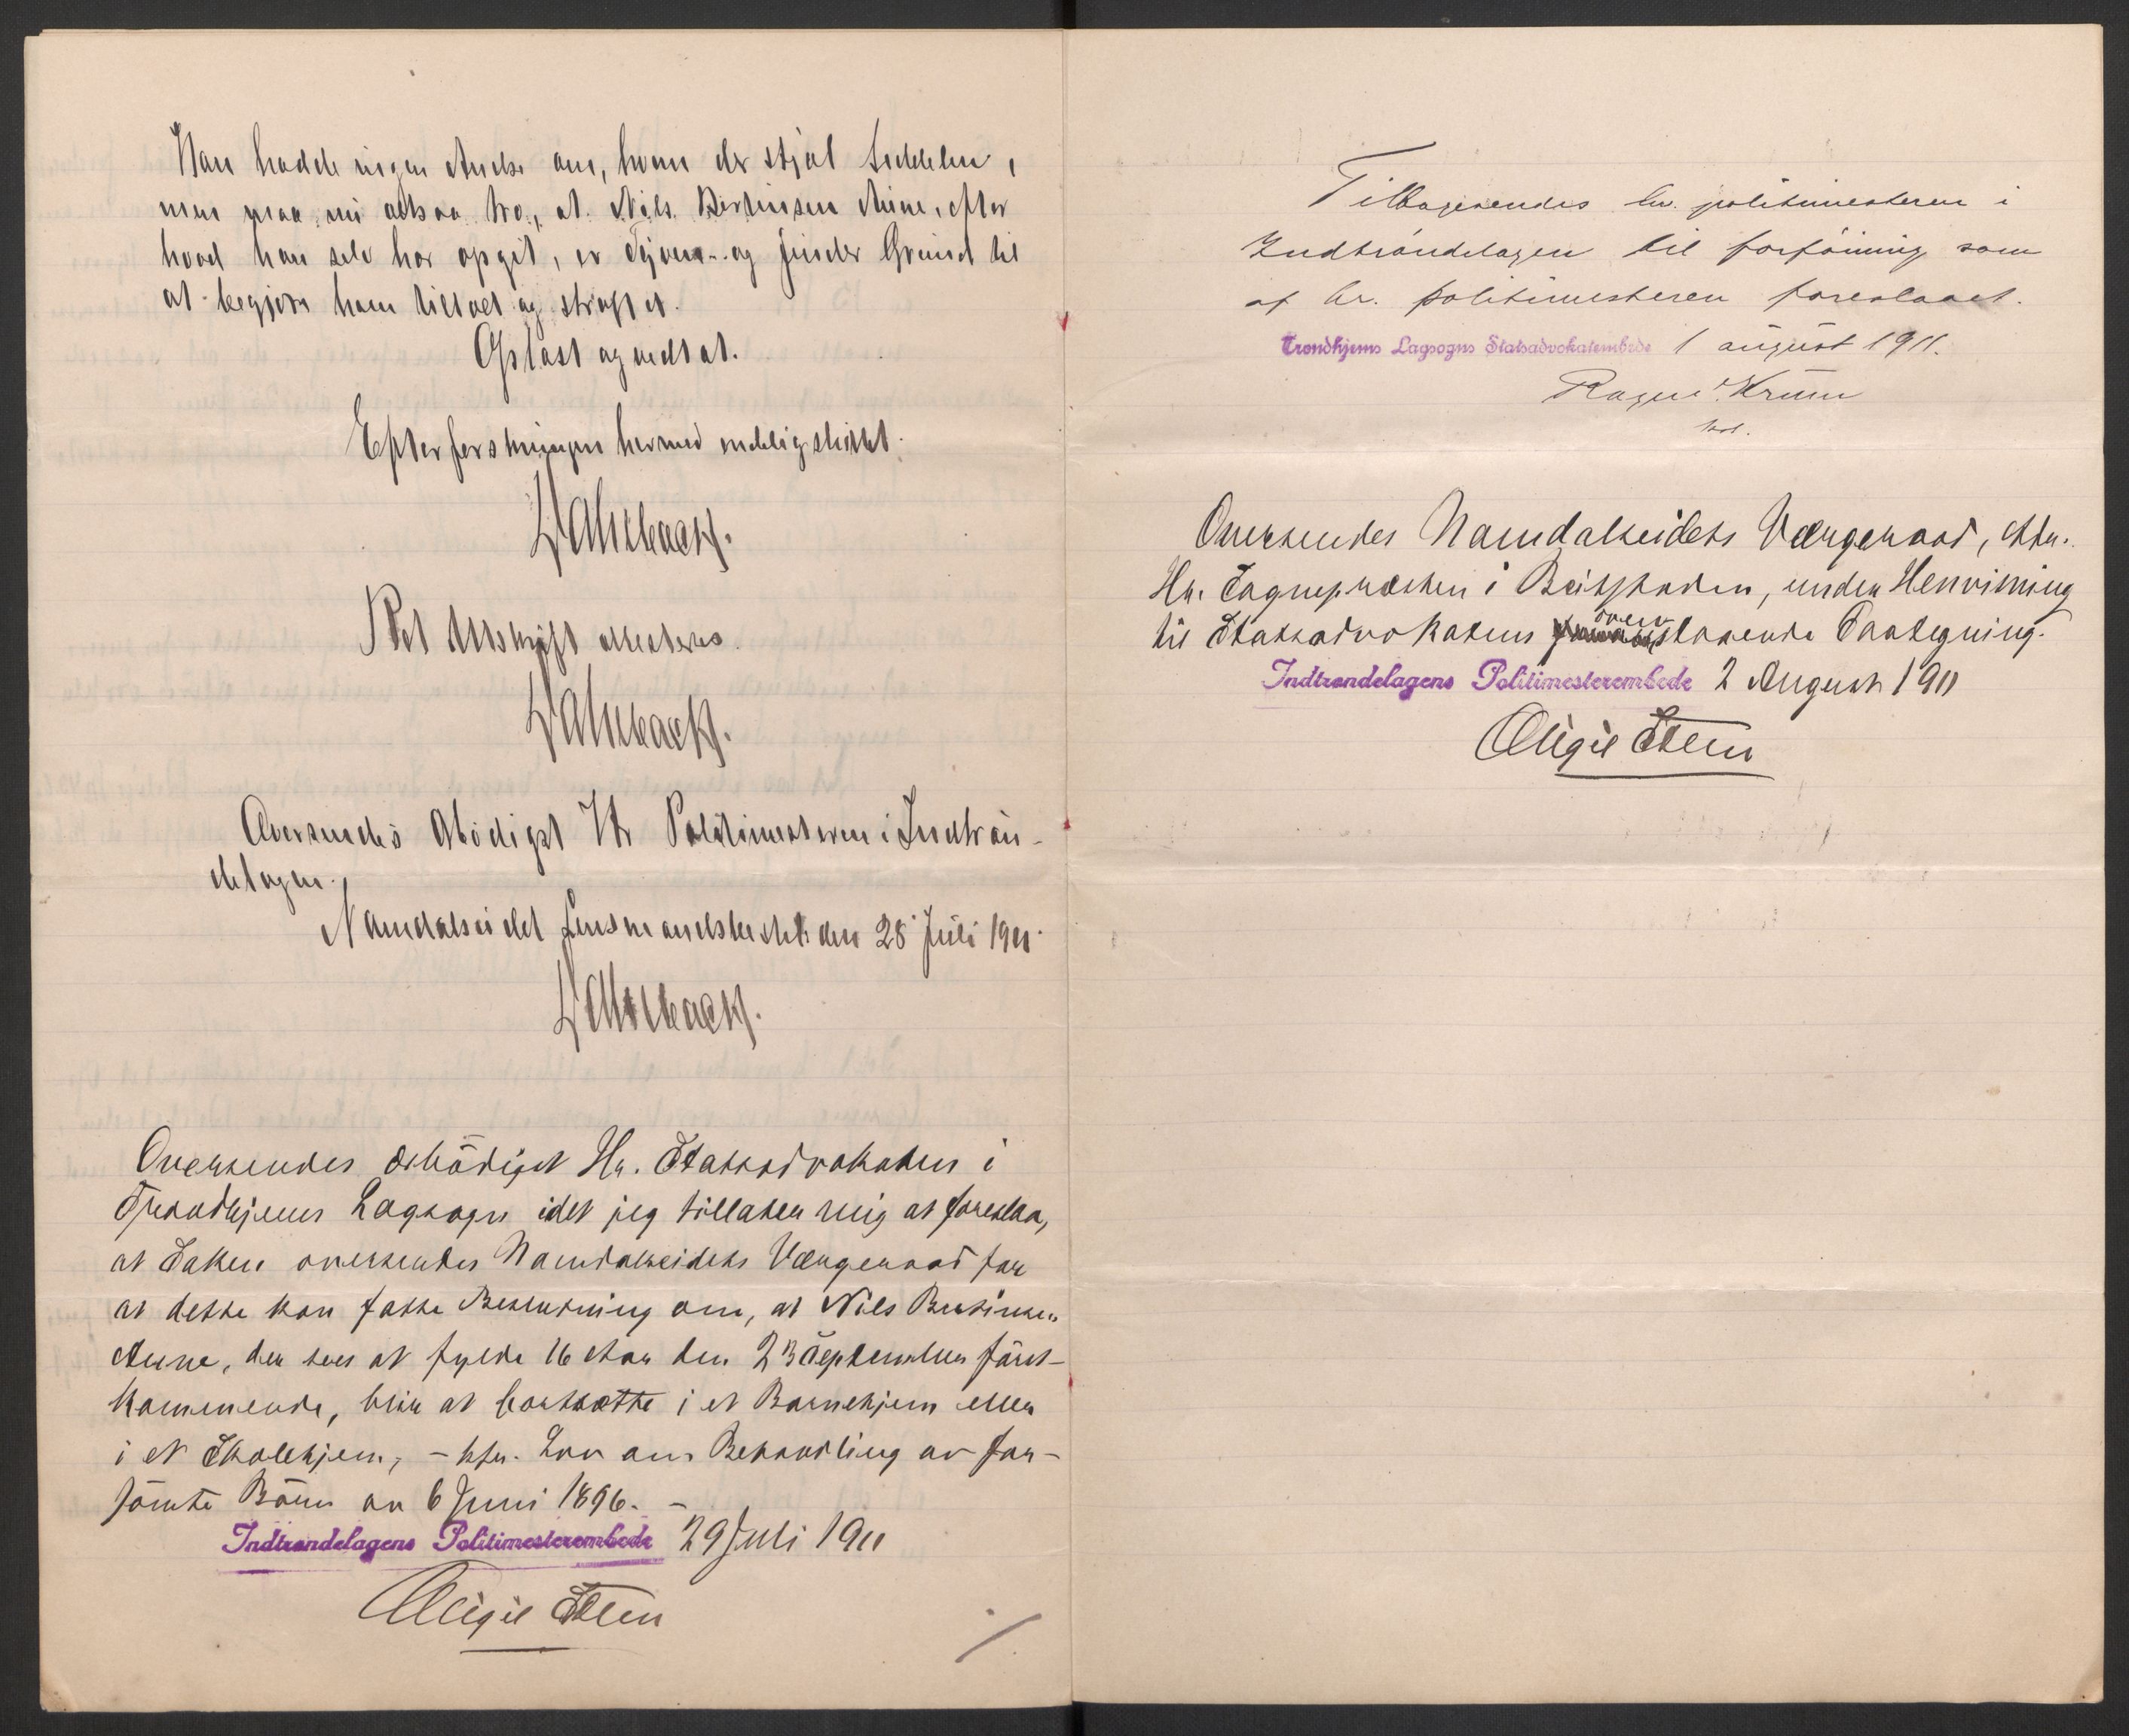 Han hadde ingen Anelse om, hvem der stjal Seddelen,
men maa nu altsaa tro, at Nils Bertinsen Aune, efter
hvad han selv har opgit, er Tyven og finder Grund til
at begjære ham tiltalt og straffet.
Oplæst og vedtat.
Efterforskningen hermed endelig sluttet.
Ret Utskrift attesteres.
Oversendes ærbödigst Hr Politimesteren i Indtrön-
delagen.
Namdalseidet Lensmandsbestil. den 28 Juli 1911.
Oversendes ærbödigst Hr. Statsadvokaten i
Trondhjems Lagsogn idet jeg tillater mig at foreslaa,
at Saken oversendes Namdalseidets Vergeraad for
at dette kan fatte Beslutning om, at Nils Bertinsen
Aune, der sees at fylde 16 Aar den 23 September först-
kommende, blir at bortsætte i et Barnehjem eller
i et Skolehjem, - kfr. Lov om Behandling av for-
sömte Börn av 6 Juni 1896. -
Indtrøndelagens Politimesterembede 29 Juli 1911
Stern
Tilbagesendes hr. politimesteren i
Indtröndelagen til forföining som
af hr. politimesteren foreslaaet.
Trondhjems Lagsogns Statsadvokatembede 1 august 1911.
Oversendes Namdalseidets Vergeraad, Adr.
Hr. Sognepræsten i Beitstaden, under Henvisning
til Statsadvokatens ovenstaaende Paategning.
Indtrøndelagens Politimesterembede 2 August 1911
Stern